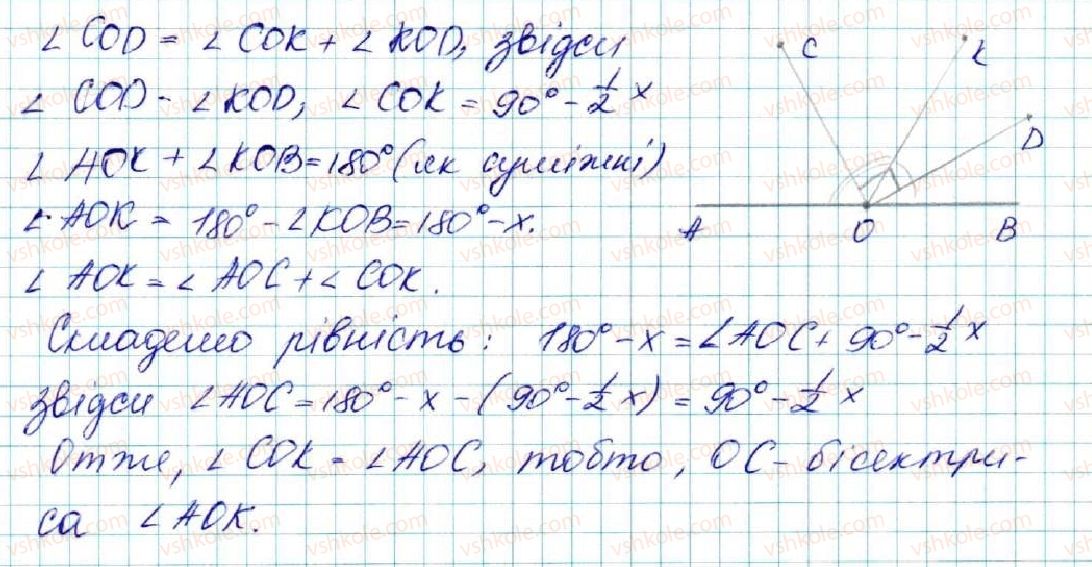 ∠ COD = ∠ COK + ∠ KOD, звідси
∠ COD - ∠ KOD, ∠ COK = 90° - 1/2 x
∠ AOK + ∠ KOB = 180° (як суміжні)
∠ AOK = 180° - ∠ KOB = 180° - x.
∠ AOK = ∠ AOC + ∠ COK.
Складемо рівність: 180° - x = ∠ AOC + 90° - 1/2 x
звідси ∠ AOC = 180° - x - (90° - 1/2 x) = 90° - 1/2 x
Отже, ∠ COK = ∠ AOC, тобто, OC - бісектри-
са ∠ AOK.
C
K
D
A
O
B
vshkole.com